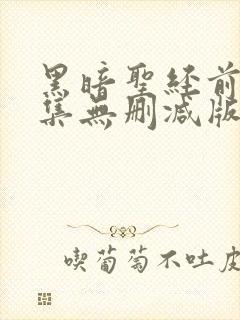 黑暗聖經前
集無刪減版
喫葡萄不吐皮